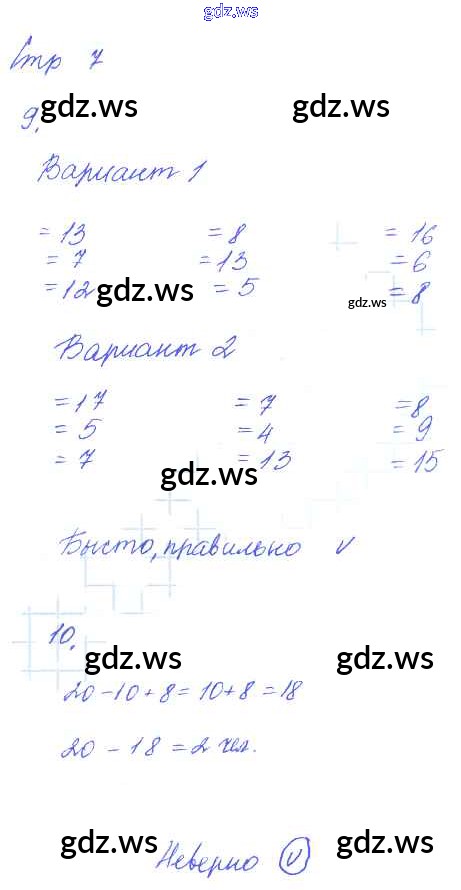 gdz.ws
Стр 7
gdz.ws gdz.ws
9.
Вариант 1
= 13 = 8 = 16
= 7 = 13 = 6
= 12 gdz.ws = 5 gdz.ws = 8
Вариант 2
= 17 = 7 = 8
= 5 = 4 = 9
= 7 gdz.ws = 13 = 15
Бысто, правильно v
10.
gdz.ws gdz.ws
20 - 10 + 8 = 10 + 8 = 18
20 - 18 = 2 чел.
gdz.ws gdz.ws
Неверно v